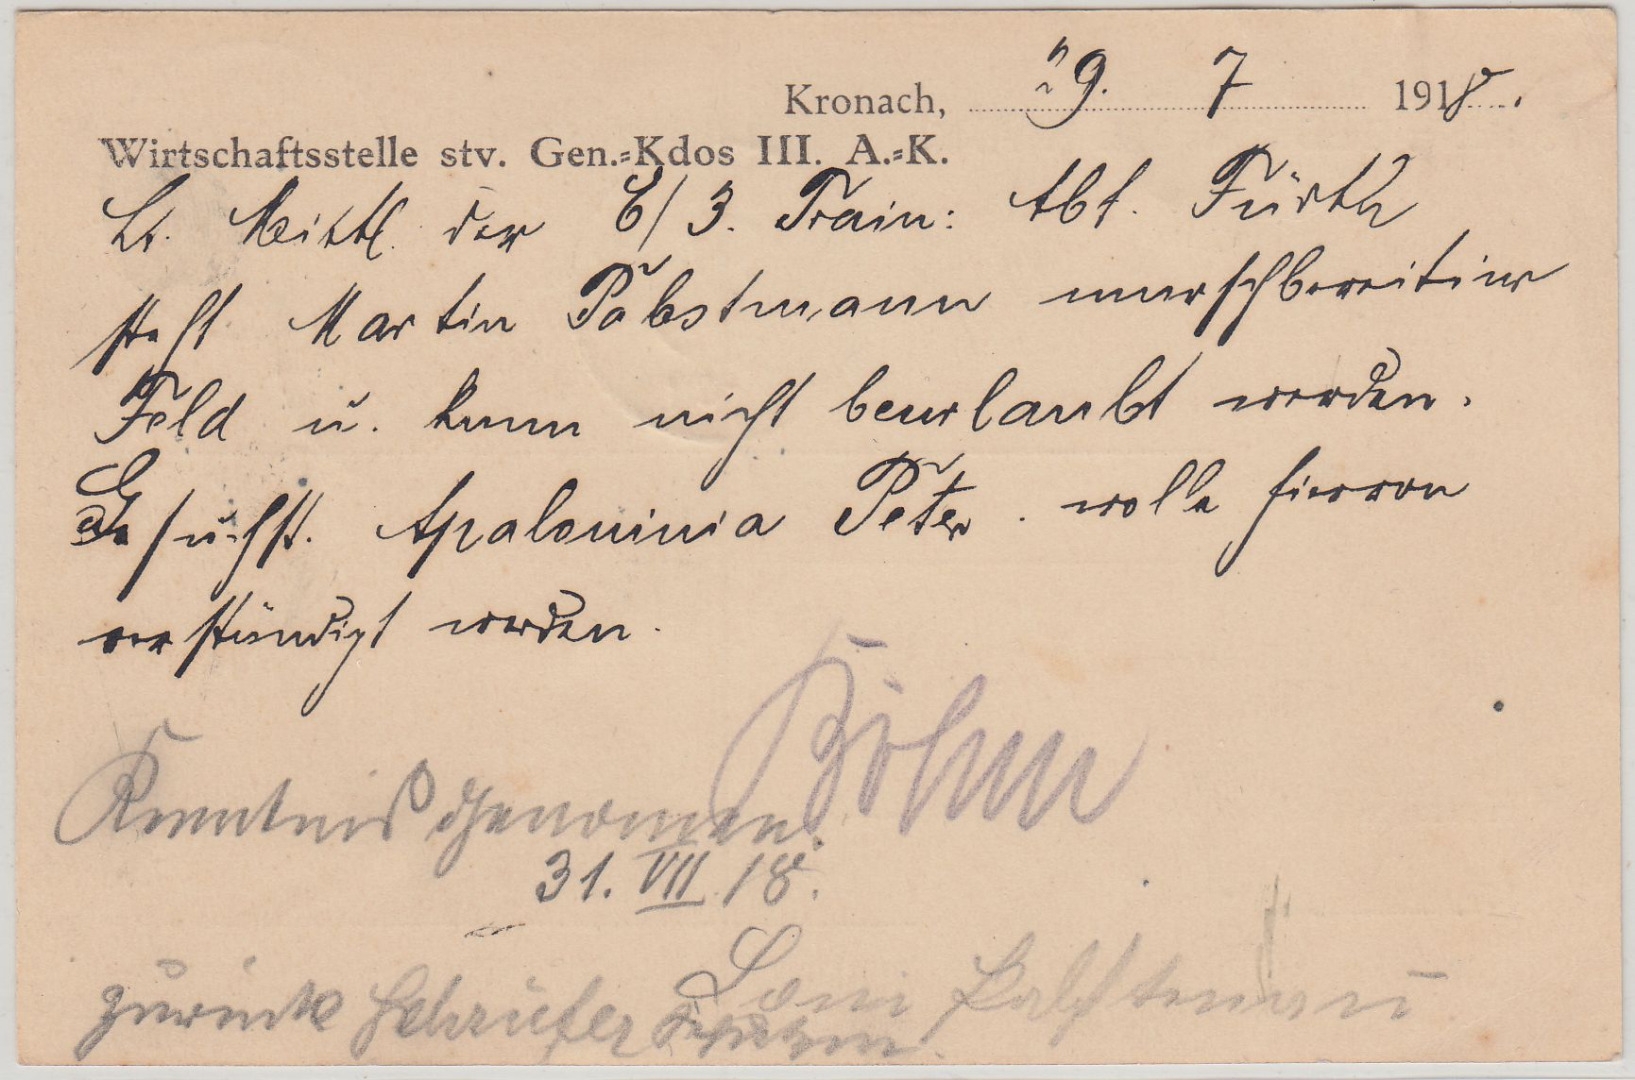 Kronach, 29. 7 1918.
Wirtschaftsstelle stv. Gen.=Kdos III. A.=K.
Lt. Mittl. der E/3. Train: Abt. Fürth
steht Martin Pabstmann marschbereit ins
Feld u. kann nicht beurlaubt werden.
Gesuchst. Apalouinia Peter wolle hiervon
verständigt werden.
Böhm
Kenntniß genommen.
31. VII. 18.
zurück